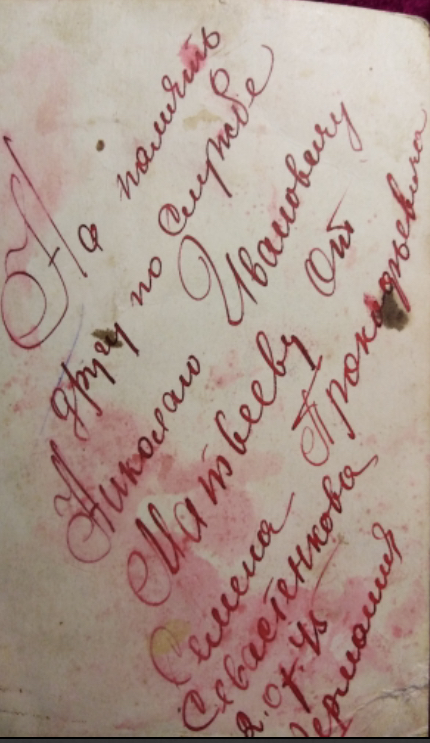 На память
другу по службе
Николаю Ивановичу
Матвееву от
Семена Прокофьевича
Севастенкова
2.07.45
Германия